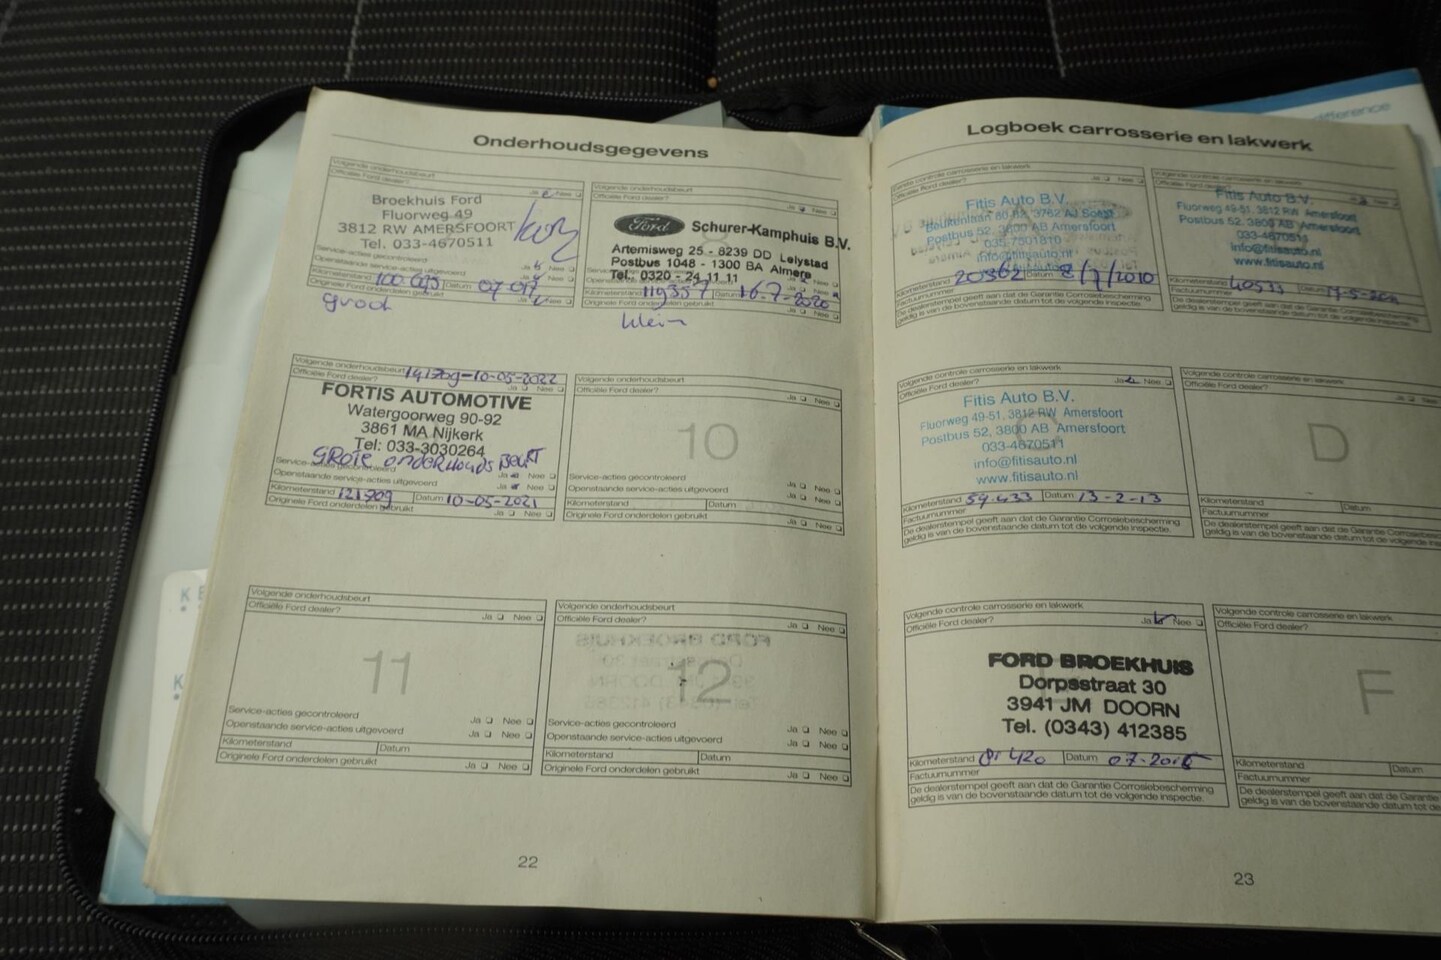 Onderhoudsgegevens
Volgende onderhoudsbeurt
Officiële Ford dealer? Ja Nee
Broekhuis Ford
Fluorweg 49
3812 RW AMERSFOORT
Tel. 033-4670511
Service-acties gecontroleerd Ja Nee
Openstaande service-acties uitgevoerd Ja Nee
Kilometerstand Datum
Originele Ford onderdelen gebruikt Ja Nee
groot
Volgende onderhoudsbeurt
Officiële Ford dealer? Ja Nee
Ford Schurer-Kamphuis B.V.
Artemisweg 25 - 8239 DD Lelystad
Postbus 1048 - 1300 BA Almere
Tel. 0320 - 24 11 11
Kilometerstand 119357 Datum 16-7-2020
Originele Ford onderdelen gebruikt Ja Nee
klein
Volgende onderhoudsbeurt 141709-10-05-2022
Officiële Ford dealer? Ja Nee
FORTIS AUTOMOTIVE
Watergoorweg 90-92
3861 MA Nijkerk
Tel: 033-3030264
GROTE onderhoudsBEURT
Service-acties gecontroleerd Ja Nee
Openstaande service-acties uitgevoerd Ja Nee
Kilometerstand 121709 Datum 10-05-2021
Originele Ford onderdelen gebruikt Ja Nee
Volgende onderhoudsbeurt
Officiële Ford dealer? Ja Nee
10
Service-acties gecontroleerd Ja Nee
Openstaande service-acties uitgevoerd Ja Nee
Kilometerstand Datum
Originele Ford onderdelen gebruikt Ja Nee
Volgende onderhoudsbeurt
Officiële Ford dealer? Ja Nee
11
Service-acties gecontroleerd Ja Nee
Openstaande service-acties uitgevoerd Ja Nee
Kilometerstand Datum
Originele Ford onderdelen gebruikt Ja Nee
Volgende onderhoudsbeurt
Officiële Ford dealer? Ja Nee
12
Service-acties gecontroleerd Ja Nee
Openstaande service-acties uitgevoerd Ja Nee
Kilometerstand Datum
Originele Ford onderdelen gebruikt Ja Nee
22
Logboek carrosserie en lakwerk
Eerste controle carrosserie en lakwerk
Officiële Ford dealer? Ja Nee
Fitis Auto B.V.
Postbus 52, 3800 AB Amersfoort
info@fitisauto.nl
Kilometerstand 20362 Datum 8/7/2010
Factuurnummer
De dealerstempel geeft aan dat de Garantie Corrosiebescherming
geldig is van de bovenstaande datum tot de volgende inspectie.
Volgende controle carrosserie en lakwerk
Officiële Ford dealer? Nee
Fitis Auto B.V.
Fluorweg 49-51, 3812 RW Amersfoort
Postbus 52, 3800 AB Amersfoort
033-4670511
info@fitisauto.nl
www.fitisauto.nl
Kilometerstand 40533 Datum
Factuurnummer
De dealerstempel geeft aan dat de Garantie Corrosiebescherming
geldig is van de bovenstaande datum tot de volgende inspectie.
Volgende controle carrosserie en lakwerk
Officiële Ford dealer? Ja Nee
Fitis Auto B.V.
Fluorweg 49-51, 3812 RW Amersfoort
Postbus 52, 3800 AB Amersfoort
033-4670511
info@fitisauto.nl
www.fitisauto.nl
Kilometerstand 59.433 Datum 13-2-13
Factuurnummer
De dealerstempel geeft aan dat de Garantie Corrosiebescherming
geldig is van de bovenstaande datum tot de volgende inspectie.
Volgende controle carrosserie en lakwerk
Officiële Ford dealer?
D
Kilometerstand Datum
Factuurnummer
De dealerstempel geeft aan dat de Garantie
geldig is van de bovenstaande datum tot de
Volgende controle carrosserie en lakwerk
Officiële Ford dealer? Ja Nee
FORD BROEKHUIS
Dorpsstraat 30
3941 JM DOORN
Tel. (0343) 412385
Kilometerstand Datum
Factuurnummer
De dealerstempel geeft aan dat de Garantie Corrosiebescherming
geldig is van de bovenstaande datum tot de volgende inspectie.
Volgende controle carrosserie en lakwerk
Officiële Ford dealer?
F
Kilometerstand Datum
Factuurnummer
De dealerstempel geeft aan dat de Garantie
geldig is van de bovenstaande datum tot de
23